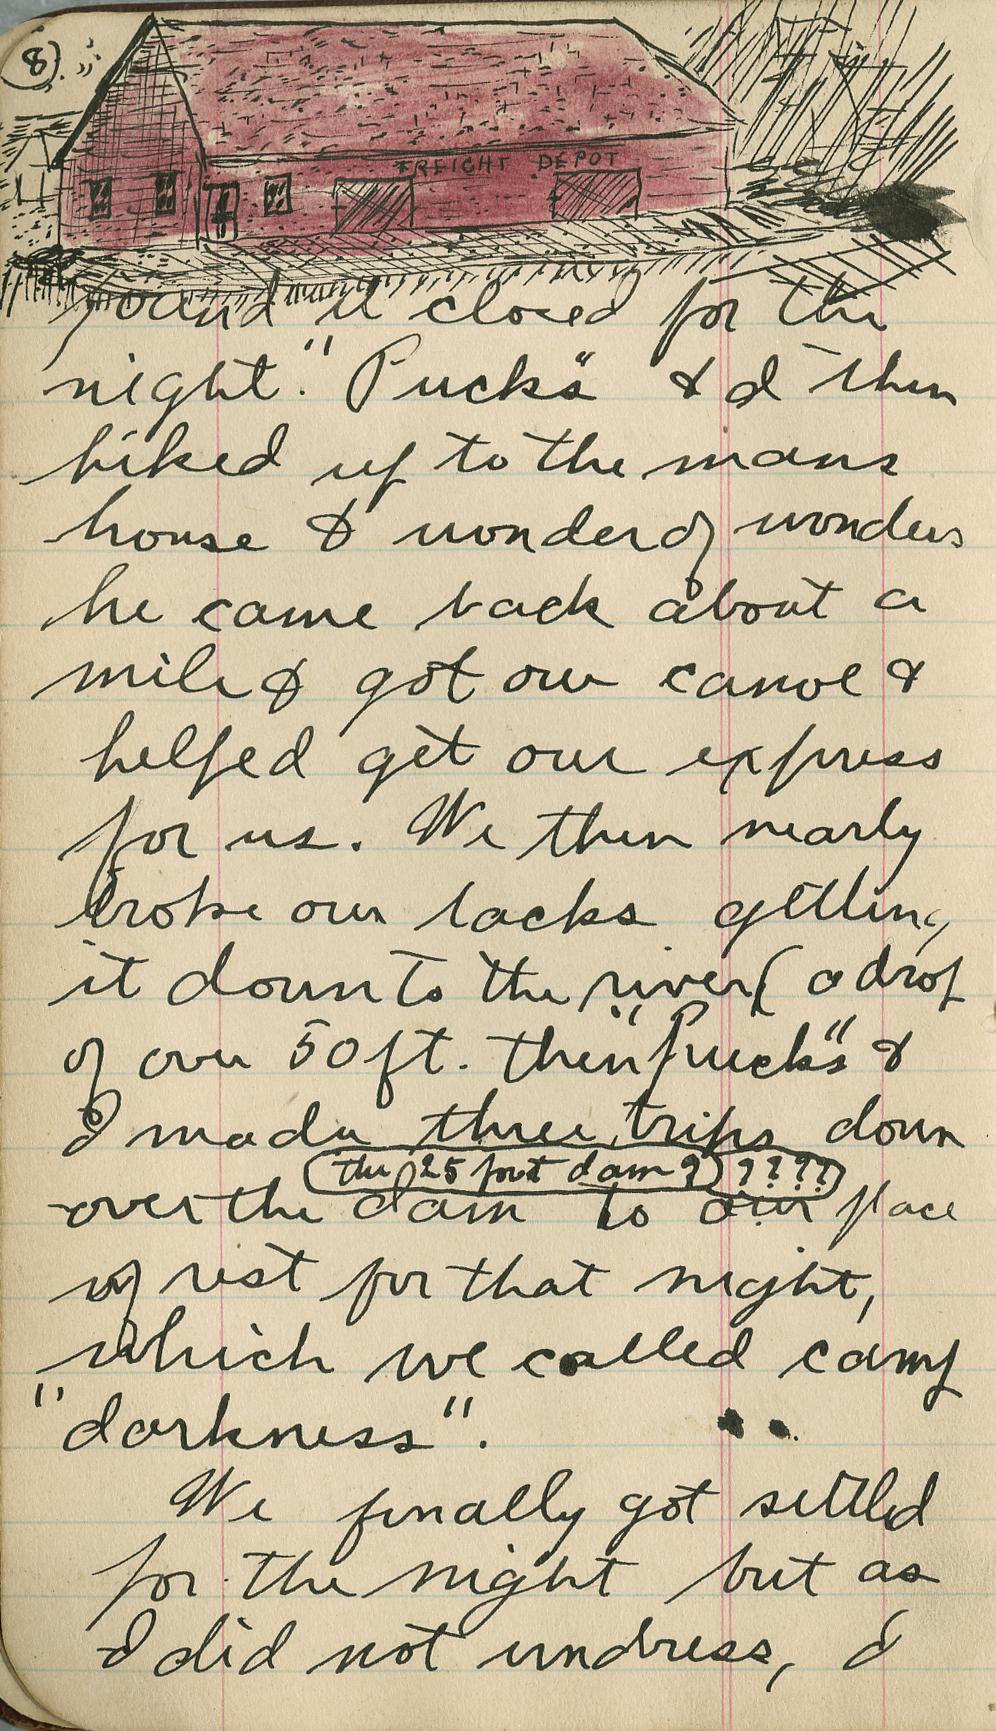 8
FREIGHT DEPOT
found it closed for the
night." Pucks" & I then
hiked up to the mans
house & wonder of wonders
he came back about a
mile & got our canoe &
helped get our express
for us. We then nearly
broke our backs getting
it down to the river (a drop
of over 50 ft. then "Pucks" &
I made three trips down
(the 25 foot dam?) ????)
over the dam to our place
of rest for that night,
which we called camp
"darkness".
We finally got settled
for the night but as
I did not undress, I